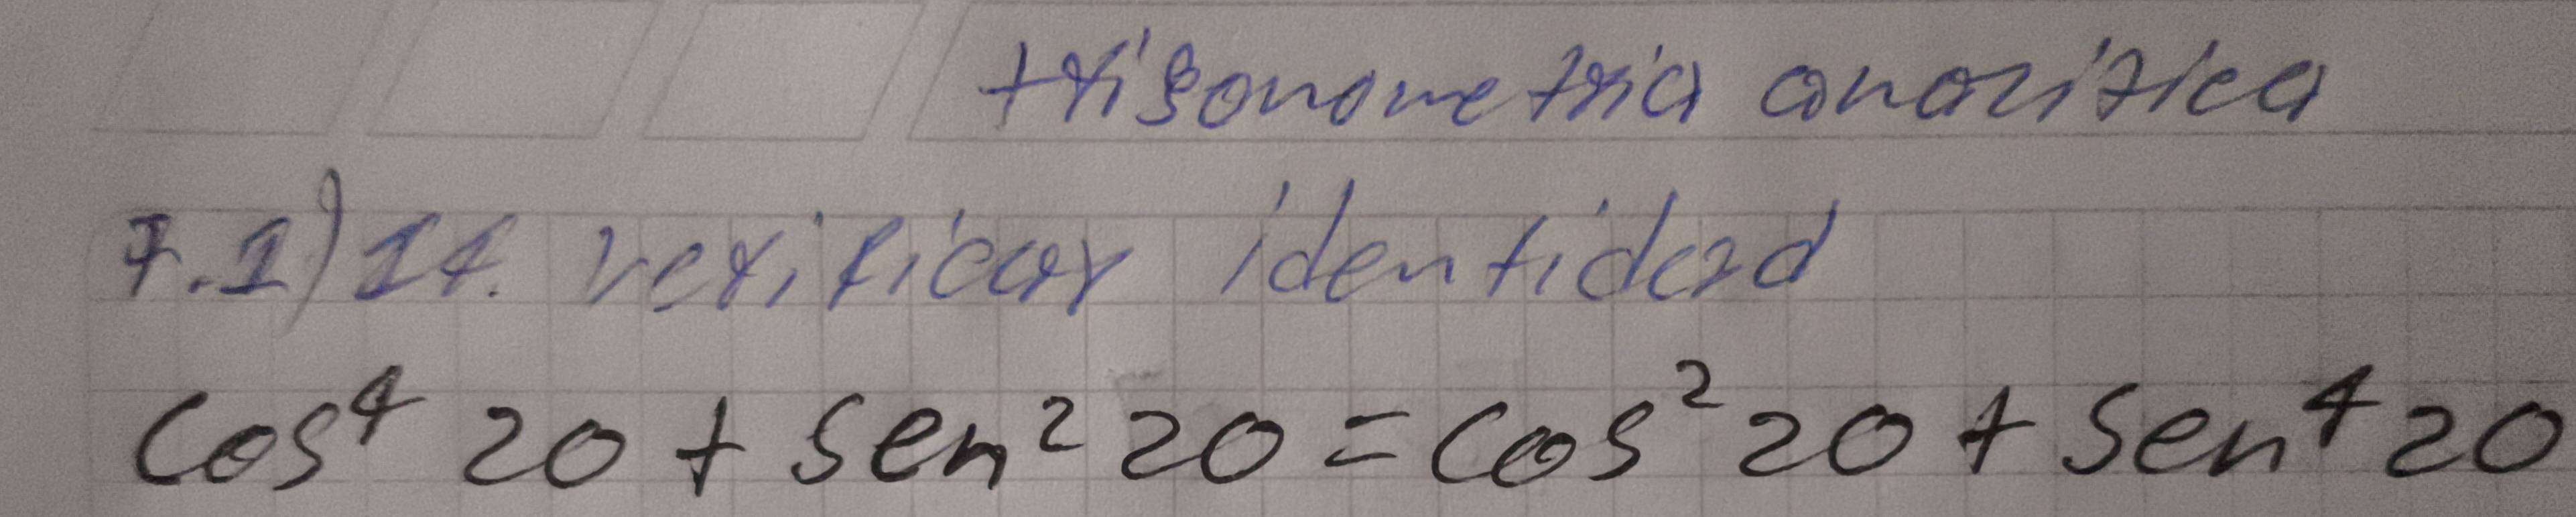 trigonometria analitica
7.1) 14. verificar identidad
cos⁴ 20 + sen² 20 = cos² 20 + sen⁴ 20